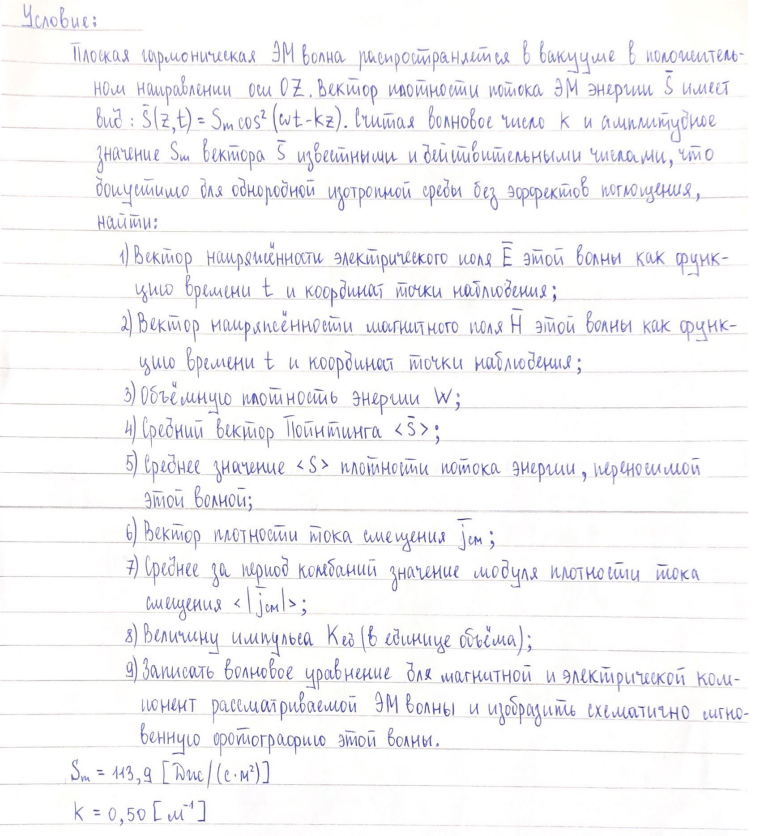 Условие:
Плоская гармоническая ЭМ волна распространяется в вакууме в положитель-
ном направлении оси OZ. Вектор плотности потока ЭМ энергии S̄ имеет
вид: S̄(z,t) = Sm cos² (ωt-kz). Считая волновое число k и амплитудное
значение Sm вектора S̄ известными и действительными числами, что
допустимо для однородной изотропной среды без эффектов поглощения,
найти:
1) Вектор напряжённости электрического поля Ē этой волны как функ-
цию времени t и координат точки наблюдения;
2) Вектор напряжённости магнитного поля H̄ этой волны как функ-
цию времени t и координат точки наблюдения;
3) Объёмную плотность энергии W;
4) Средний вектор Пойнтинга <S̄>;
5) Среднее значение <S> плотности потока энергии, переносимой
этой волной;
6) Вектор плотности тока смещения j̄см;
7) Среднее за период колебаний значение модуля плотности тока
смещения <|j̄см|>;
8) Величину импульса Kед (в единице объёма);
9) Записать волновое уравнение для магнитной и электрической ком-
понент рассматриваемой ЭМ волны и изобразить схематично мгно-
венную фотографию этой волны.
Sm = 113,9 [Дж/(с·м²)]
k = 0,50 [м⁻¹]